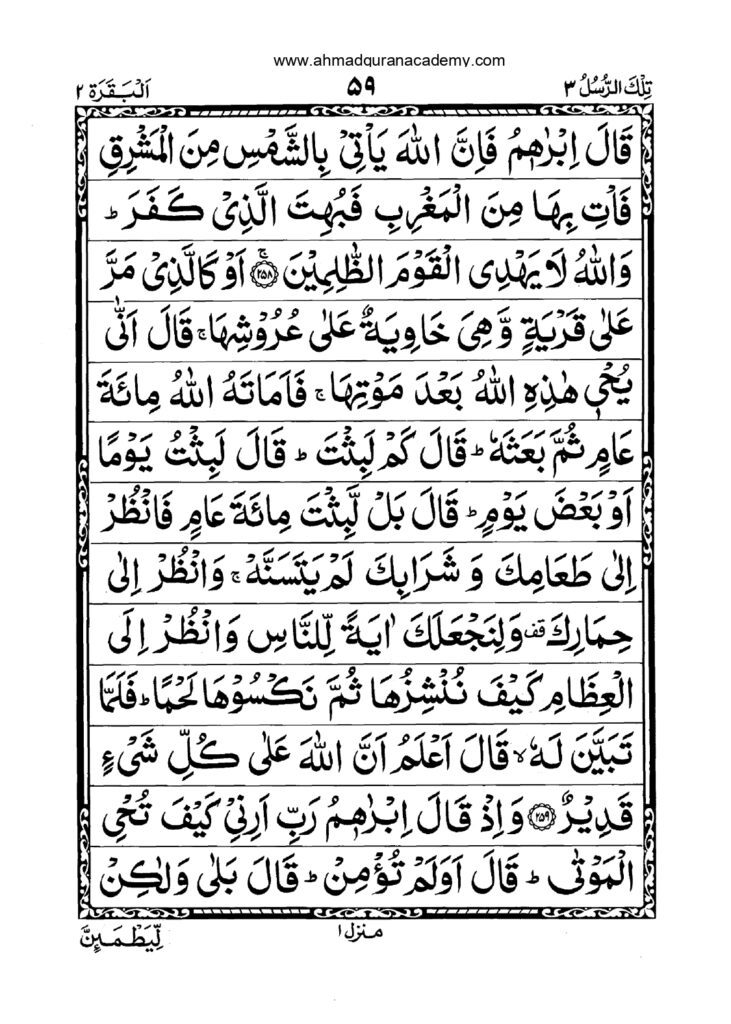 www.ahmadquranacademy.com
تِلْكَ الرُّسُلُ ٣ ۵۹ اَلْبَقَرَة ٢
قَالَ اِبْرٰهٖمُ فَاِنَّ اللّٰهَ يَاْتِيْ بِالشَّمْسِ مِنَ الْمَشْرِقِ
فَاْتِ بِهَا مِنَ الْمَغْرِبِ فَبُهِتَ الَّذِيْ كَفَرَ ؕ
وَاللّٰهُ لَا يَهْدِى الْقَوْمَ الظّٰلِمِيْنَ ۚ ﴿۲۵۸﴾ اَوْ كَالَّذِيْ مَرَّ
عَلٰى قَرْيَةٍ وَّهِيَ خَاوِيَةٌ عَلٰى عُرُوْشِهَا ۚ قَالَ اَنّٰى
يُحْيٖ هٰذِهِ اللّٰهُ بَعْدَ مَوْتِهَا ۚ فَاَمَاتَهُ اللّٰهُ مِائَةَ
عَامٍ ثُمَّ بَعَثَهٗ ؕ قَالَ كَمْ لَبِثْتَ ؕ قَالَ لَبِثْتُ يَوْمًا
اَوْ بَعْضَ يَوْمٍ ؕ قَالَ بَلْ لَّبِثْتَ مِائَةَ عَامٍ فَانْظُرْ
اِلٰى طَعَامِكَ وَ شَرَابِكَ لَمْ يَتَسَنَّهْ ۚ وَانْظُرْ اِلٰى
حِمَارِكَ قف وَلِنَجْعَلَكَ اٰيَةً لِّلنَّاسِ وَانْظُرْ اِلَى
الْعِظَامِ كَيْفَ نُنْشِزُهَا ثُمَّ نَكْسُوْهَا لَحْمًا ؕ فَلَمَّا
تَبَيَّنَ لَهٗ ۙ قَالَ اَعْلَمُ اَنَّ اللّٰهَ عَلٰى كُلِّ شَيْءٍ
قَدِيْرٌ ﴿۲۵۹﴾ وَاِذْ قَالَ اِبْرٰهٖمُ رَبِّ اَرِنِيْ كَيْفَ تُحْيِ
الْمَوْتٰى ؕ قَالَ اَوَلَمْ تُؤْمِنْ ؕ قَالَ بَلٰى وَلٰكِنْ
منزل ١
لِّيَطْمَئِنَّ